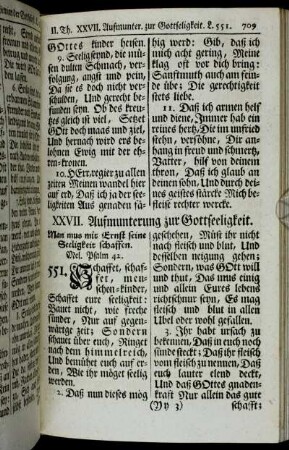 II. Th. XXVII. Aufmunter. zur Gottseligkeit. L. 551. 709
GOttes kinder heisen.
9. Seeligsynd, die müs-
sen dulten Schmach, ver-
folgung, angst und pein,
Da sie es doch nicht ver-
schulden, Und gerecht be-
funden seyn. Ob des creu-
zes gleich ist viel, Setzet
GOtt doch maas und ziel,
Und hernach wird ers be-
lohnen Ewig mit der eh-
ren-kronen.
10. HErr, regier zu allen
zeiten Meinen wandel hier
auf erd, Daß ich ja der see-
ligkeiten Aus genaden fä-
hig werd: Gib, daß ich
mich acht gering, Meine
klag oft vor dich bring:
Sanftmuth auch am fein-
de übe: Die gerechtigkeit
stets liebe.
11. Daß ich armen helf
und diene, Immer hab ein
reines hertz, Die im unfried
stehn, versöhne, Dir an-
hang in freud und schmertz,
Vatter, hilf von deinem
thron, Daß ich glaub an
deinen sohn, Und durch dei-
nes geistes stärcke Mich be-
fleise rechter wercke.
XXVII. Aufmunterung zur Gottseeligkeit.
Man mus mit Ernst seine
Seeligkeit schaffen.
Mel. Psalm 42.
551. Schaffet, schaf-
fet, men-
schen-kinder,
Schaffet eure seeligkeit:
Bauet nicht, wie freche
sünder, Nur auf gegen-
wärtge zeit; Sondern
schauet über euch, Ringet
nach dem himmelreich,
Und bemühet euch auf er-
den, Wie ihr möget seelig
werden.
2. Daß nun dieses mög
geschehen, Müst ihr nicht
nach fleisch und blut, Und
desselben neigung gehen;
Sondern, was GOtt will
und thut, Das mus einig
und allein Eures lebens
richtschnur seyn, Es mag
fleisch und blut in allen
Übel oder wohl gefallen.
3. Ihr habt ursach zu
bekennen, Daß in euch noch
sünde steckt; Daß ihr fleisch
vom fleisch zu nennen, Daß
euch lauter elend deckt,
Und daß GOttes gnaden-
kraft Nur allein das gute
(Yy 3) schafft: